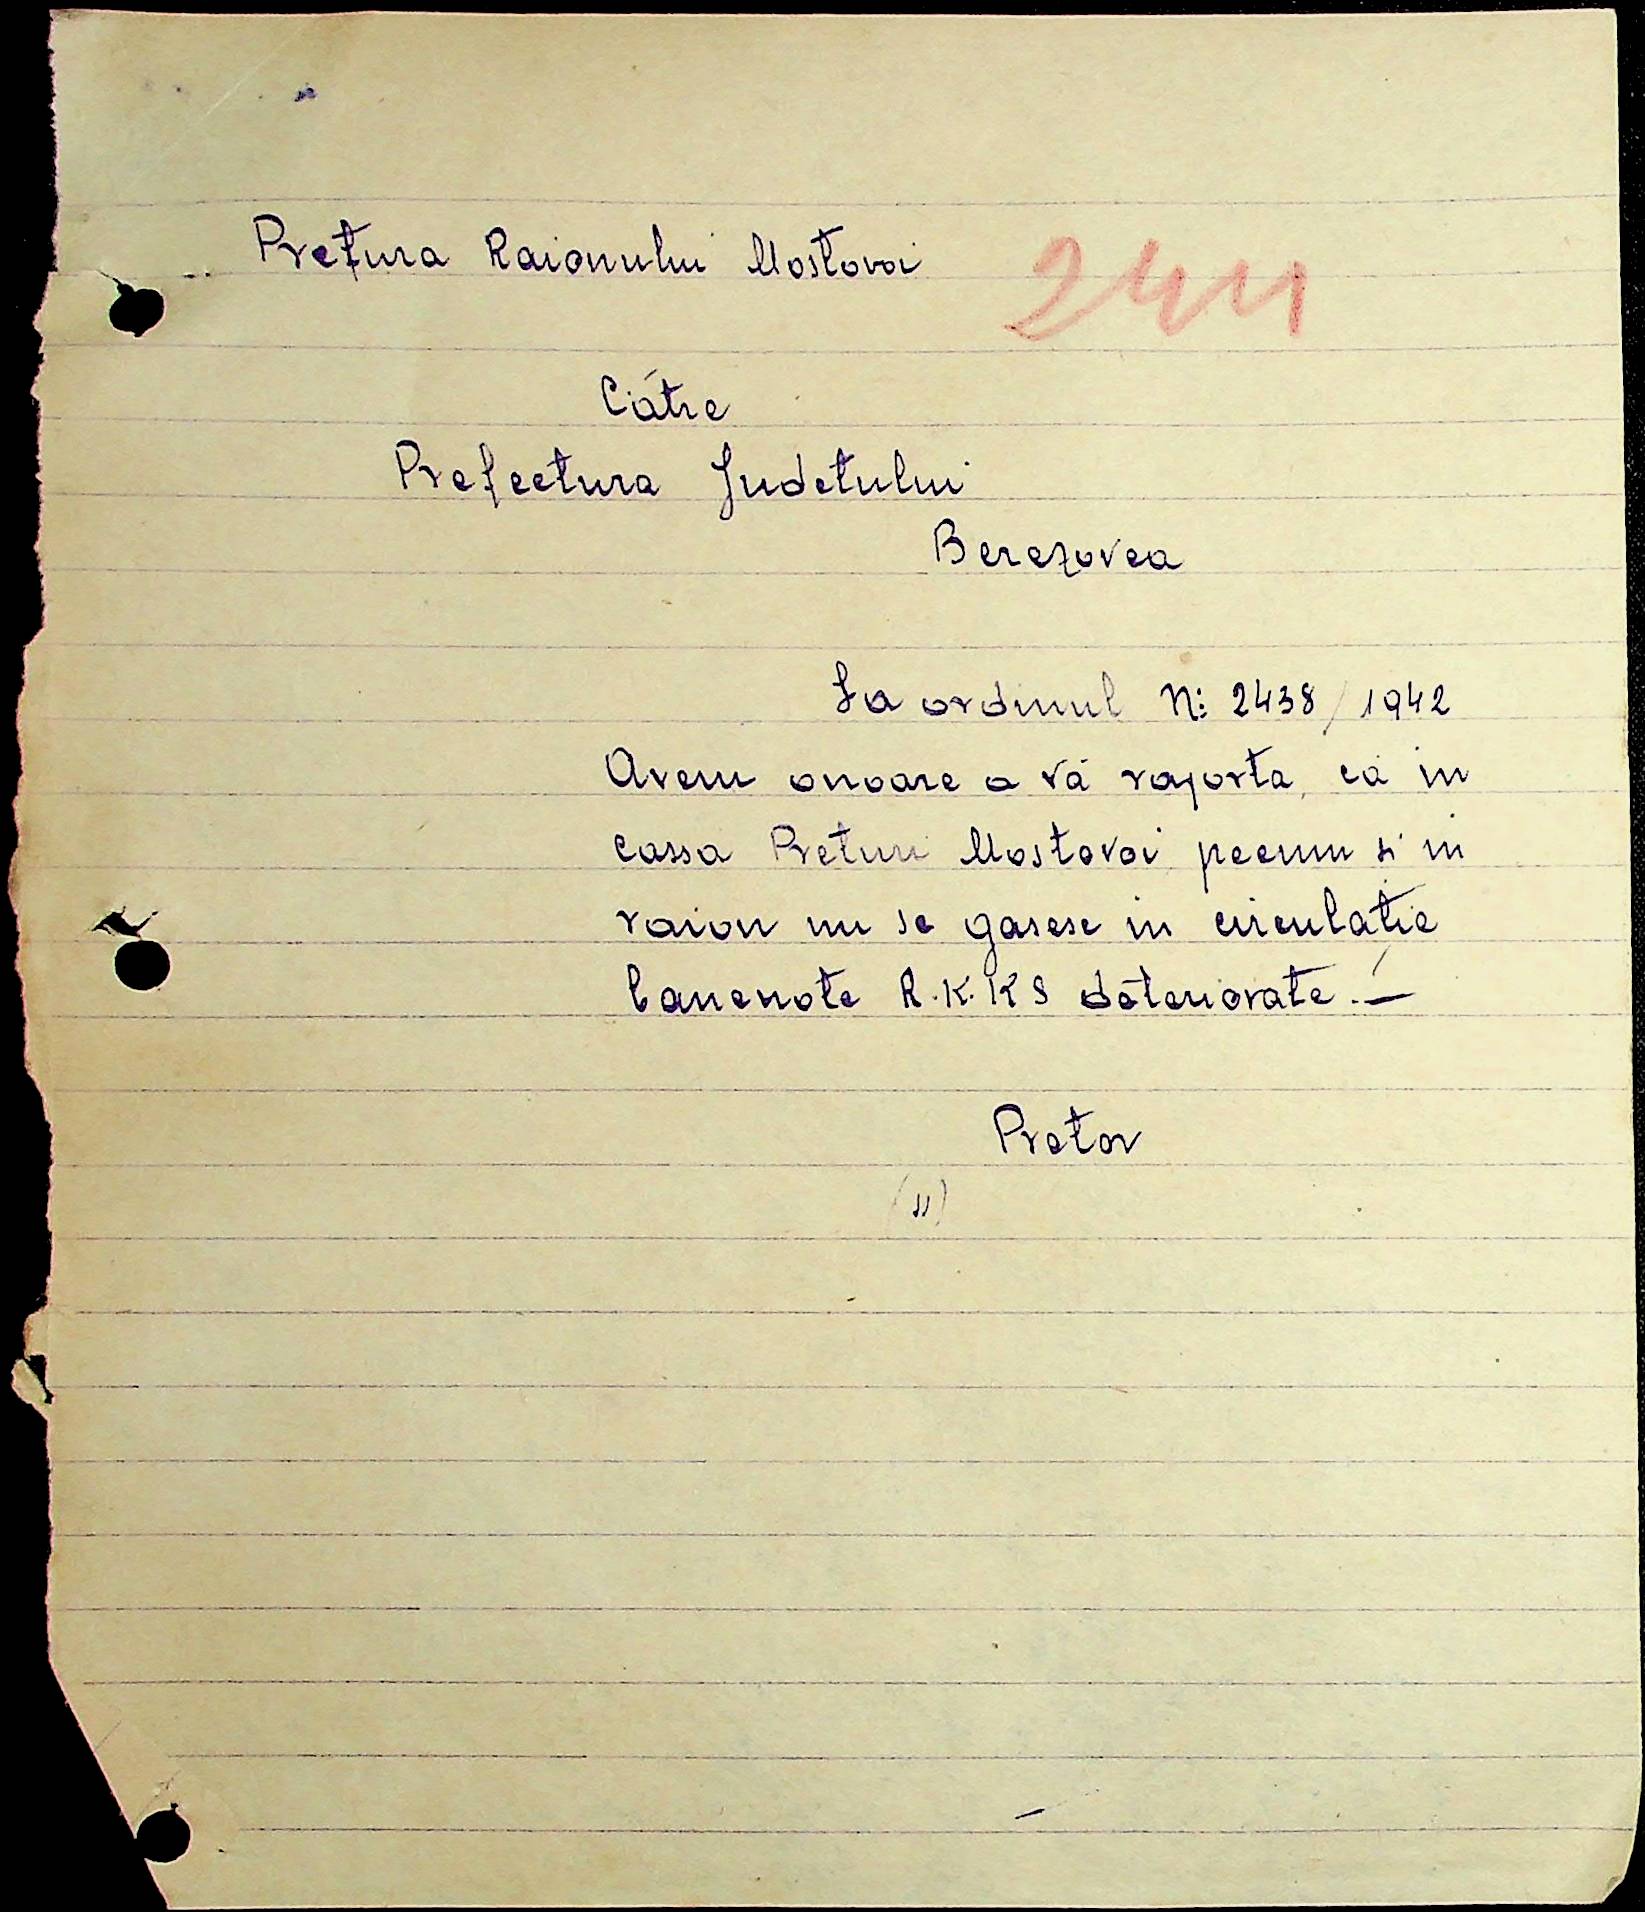 Prețura Raionului Mostovoi
244
Cátre
Prefectura Judetului
Berezovca
La ordinul N: 2438/1942
Avem onoare a vá raporta, cá in
cassa Preturi Mostovoi precum si in
raion nu se gasesc in circulatie
bancnote R.K.KS deteriorate.—
Pretor
(ss)